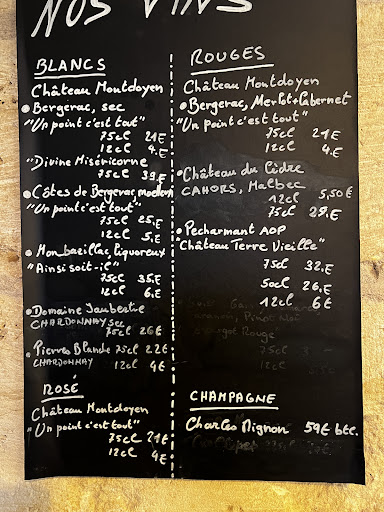 NOS VINS
BLANCS
Château Montdoyen
• Bergerac, sec
"Un point c'est tout"
75cl 21€
12cl 4.€
"Divine Miséricorne
75cl 39.€
• Côtes de Bergerac, moelleux
"Un point c'est tout"
75cl 25.€
12cl 5.€
• Monbazillac, liquoreux
"Ainsi soit-il"
75cl 35.€
12cl 6.€
• Domaine Jaubertie
CHARDONNAY sec
75cl 26€
• Pierres Blanche 75cl 22€
CHARDONNAY 12cl 4€
ROSÉ
Château Montdoyen
"Un point c'est tout"
75cl 21€
12cl 4€
ROUGES
Château Montdoyen
• Bergerac, Merlot+Cabernet
"Un point c'est tout"
75cl 21€
12cl 4.€
• Château du Cèdre
CAHORS, Malbec
12cl 5,50€
75cl 29.€
• Pecharmant AOP
"Château Terre Vieille"
75cl 32.€
50cl 26.€
12cl 6€
Pinot Noi
Rouge
CHAMPAGNE
Charles Mignon 59€ btl.